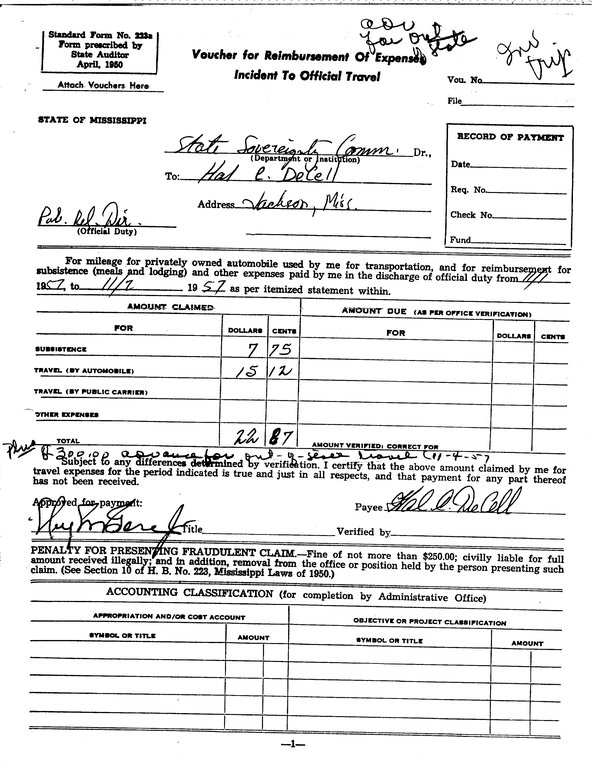 adv
for out
state
Ind
trip
Standard Form No. 223a
Form prescribed by
State Auditor
April, 1950
Attach Vouchers Here
Voucher for Reimbursement Of Expenses
Incident To Official Travel
Vou. No.
File
STATE OF MISSISSIPPI
State Sovereignty Comm. Dr.,
(Department or Institution)
To: Hal C. DeCell
Address Jackson, Miss.
Pub. Rel. Dir.
(Official Duty)
RECORD OF PAYMENT
Date
Req. No.
Check No.
Fund
For mileage for privately owned automobile used by me for transportation, and for reimbursement for
subsistence (meals and lodging) and other expenses paid by me in the discharge of official duty from 11/1
1957, to 11/7 1957 as per itemized statement within.
AMOUNT CLAIMED
AMOUNT DUE (AS PER OFFICE VERIFICATION)
FOR DOLLARS CENTS FOR DOLLARS CENTS
SUBSISTENCE 7 75
TRAVEL (BY AUTOMOBILE) 15 12
TRAVEL (BY PUBLIC CARRIER)
OTHER EXPENSES
TOTAL 22 87 AMOUNT VERIFIED: CORRECT FOR
plus $300.00 advance for out-of-state travel (11-4-57
Subject to any differences determined by verification. I certify that the above amount claimed by me for
travel expenses for the period indicated is true and just in all respects, and that payment for any part thereof
has not been received.
Approved for payment:
Payee Hal C. DeCell
Title Verified by
PENALTY FOR PRESENTING FRAUDULENT CLAIM.—Fine of not more than $250.00; civilly liable for full
amount received illegally; and in addition, removal from the office or position held by the person presenting such
claim. (See Section 10 of H. B. No. 223, Mississippi Laws of 1950.)
ACCOUNTING CLASSIFICATION (for completion by Administrative Office)
APPROPRIATION AND/OR COST ACCOUNT
OBJECTIVE OR PROJECT CLASSIFICATION
SYMBOL OR TITLE AMOUNT SYMBOL OR TITLE AMOUNT
—1—